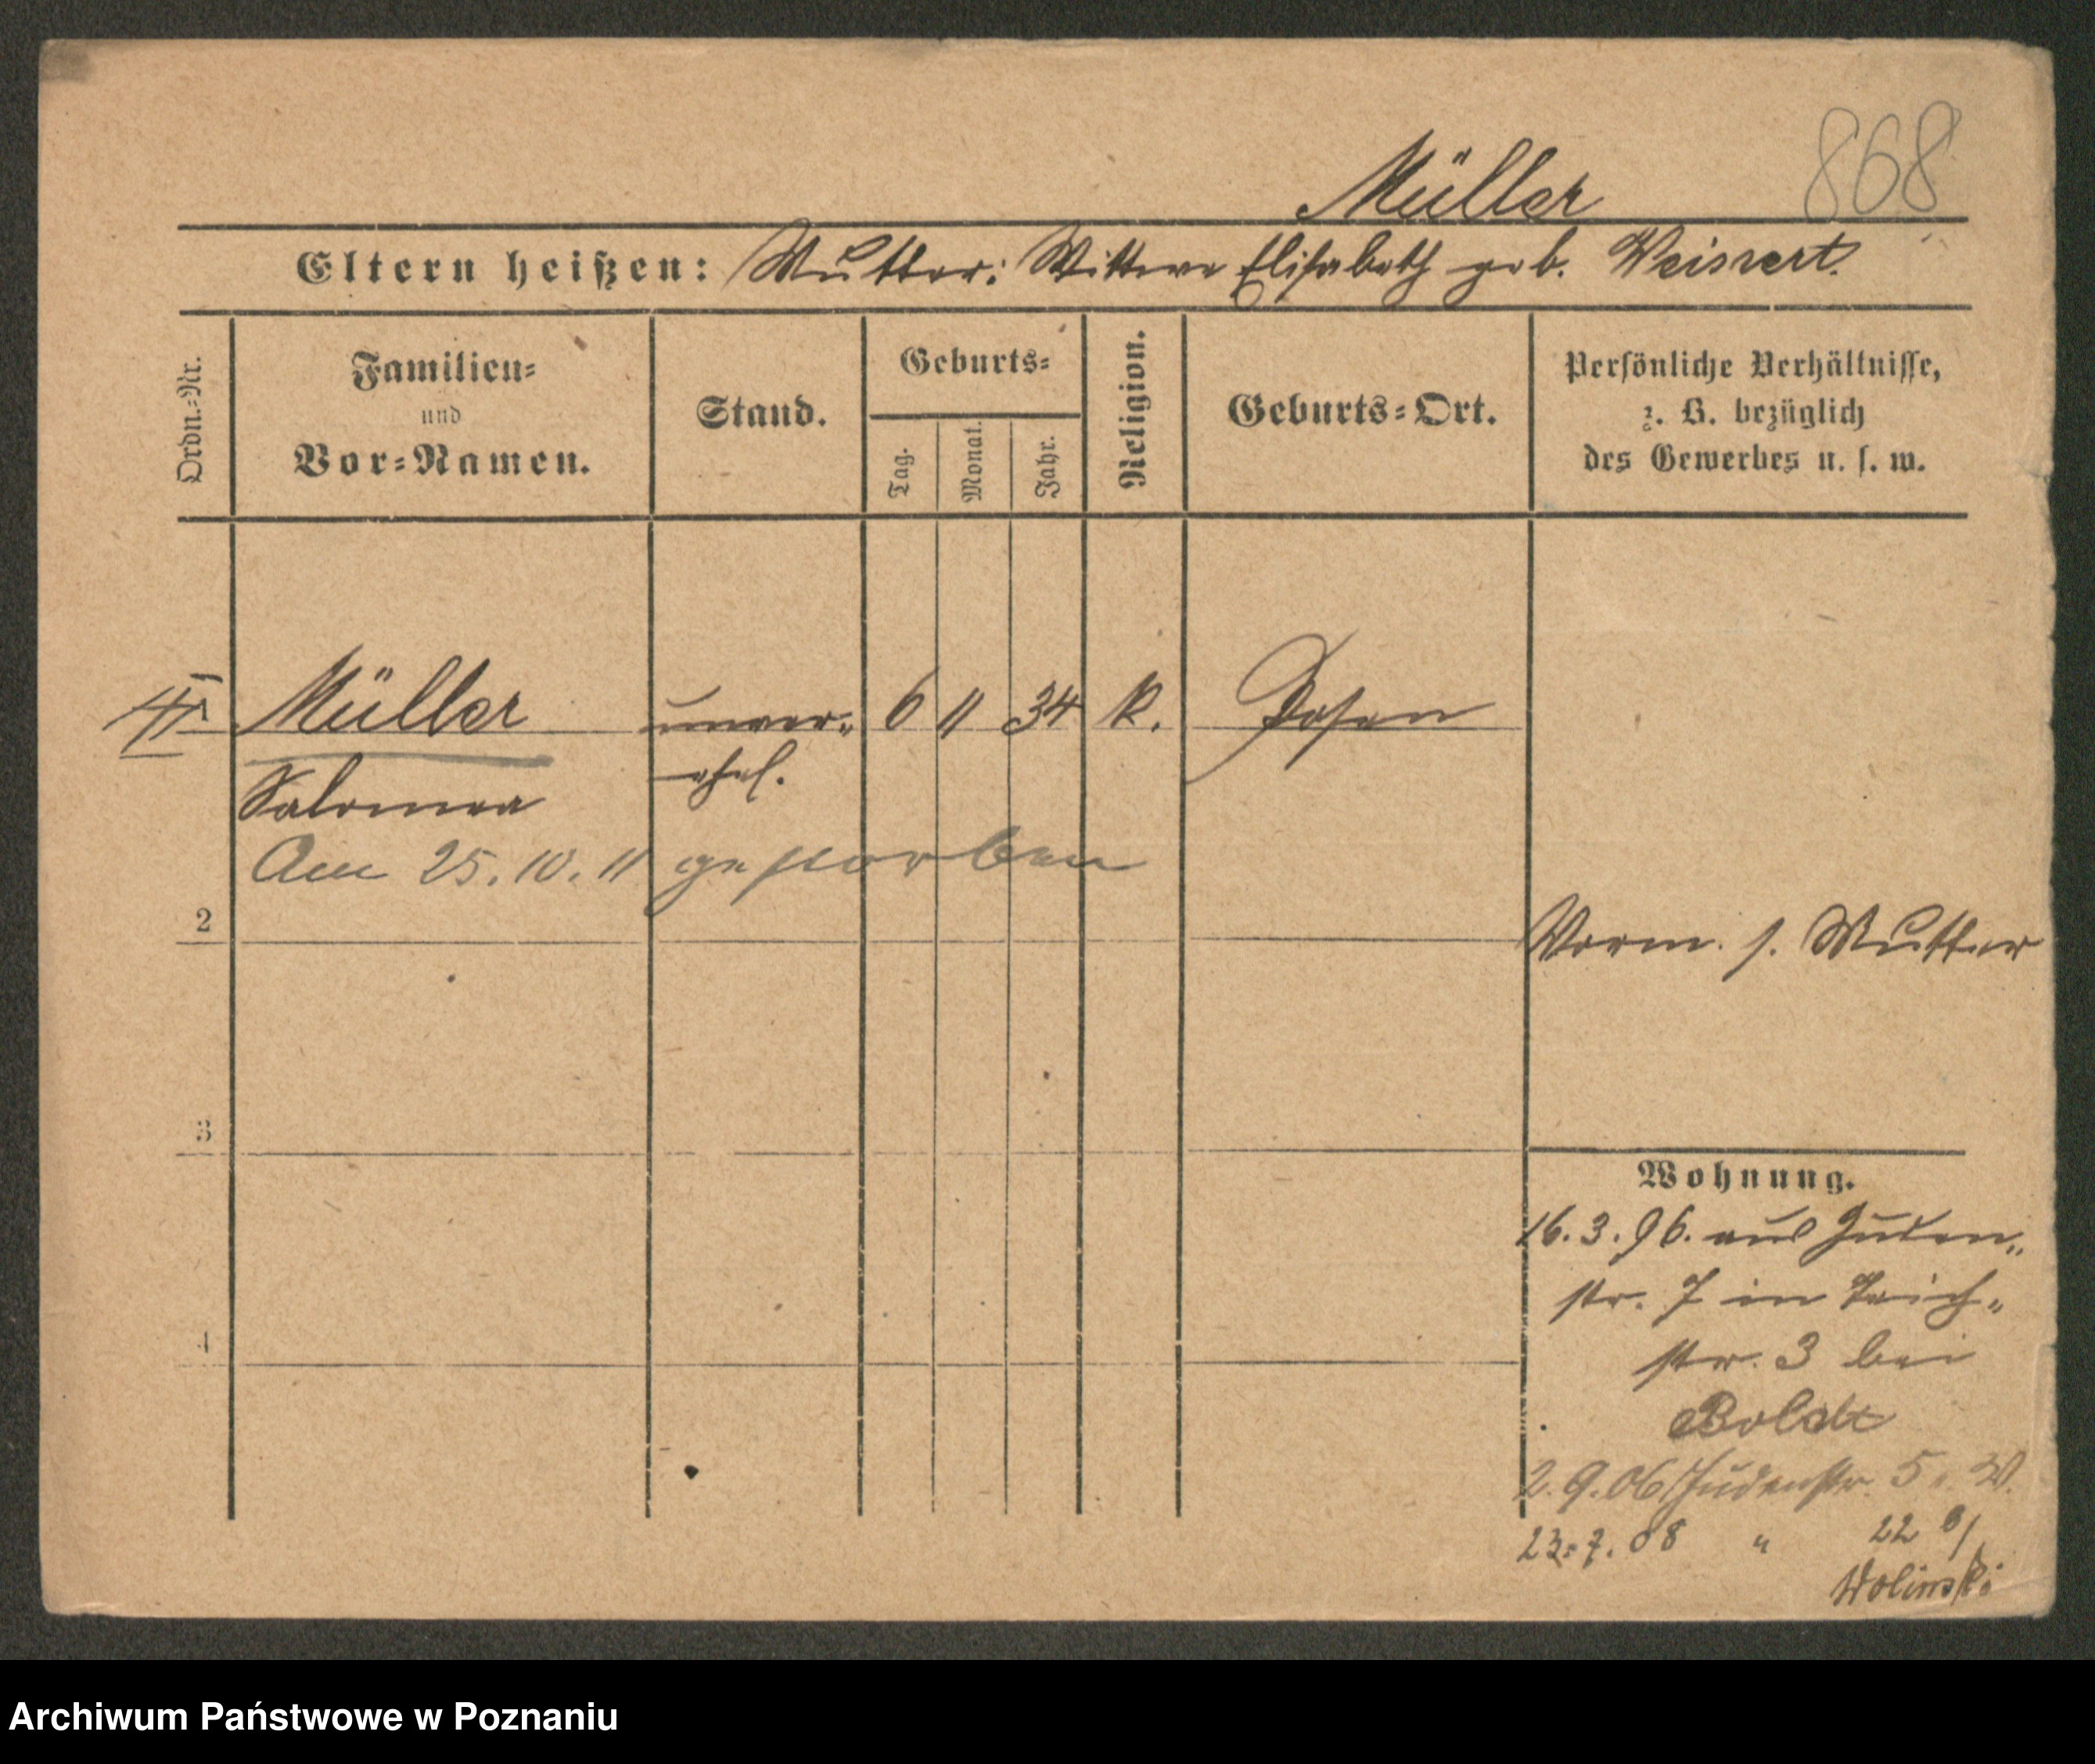 868
Müller
Eltern heißen: Mutter: Wittwe Elisabeth geb. Weissert.
Ordn.-Nr.
Familien-
und
Vor-Namen.
Stand.
Geburts-
Tag.
Monat.
Jahr.
Religion.
Geburts-Ort.
Persönliche Verhältnisse,
z. B. bezüglich
des Gewerbes u. s. w.
Müller unver- 6 11 34 k. Posen
Salomea ehel.
Am 25.10.11 gestorben
2
Vorm. s. Mutter
3
Wohnung.
16.3.96. aus Juden-
str. 7 in Teich-
str. 3 bei
4
Boldt
2.9.06 Judenstr. 5 W.
23.7.08 " 22 b/
Wolinski
Archiwum Państwowe w Poznaniu